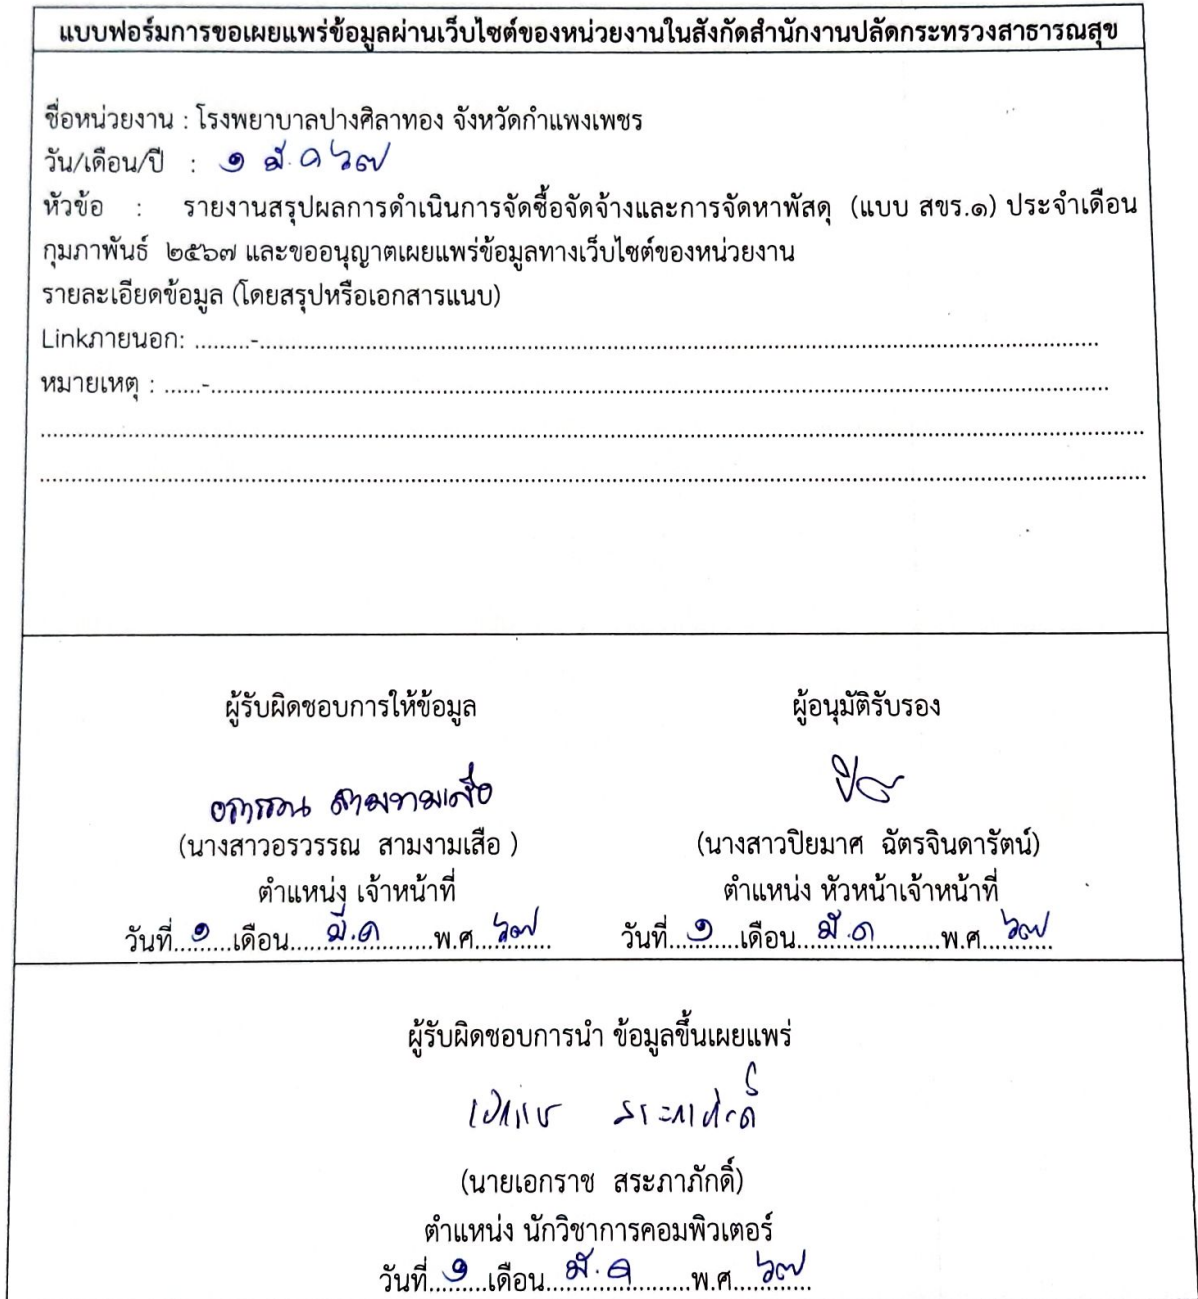 แบบฟอร์มการขอเผยแพร่ข้อมูลผ่านเว็บไซต์ของหน่วยงานในสังกัดสำนักงานปลัดกระทรวงสาธารณสุข
ชื่อหน่วยงาน : โรงพยาบาลปางศิลาทอง จังหวัดกำแพงเพชร
วัน/เดือน/ปี : ๑ มี.ค ๖๗
หัวข้อ : รายงานสรุปผลการดำเนินการจัดซื้อจัดจ้างและการจัดหาพัสดุ (แบบ สขร.๑) ประจำเดือน
กุมภาพันธ์ ๒๕๖๗ และขออนุญาตเผยแพร่ข้อมูลทางเว็บไซต์ของหน่วยงาน
รายละเอียดข้อมูล (โดยสรุปหรือเอกสารแนบ)
Linkภายนอก: .........-.........
หมายเหตุ : ......-.........
ผู้รับผิดชอบการให้ข้อมูล ผู้อนุมัติรับรอง
อรวรรณ สามงามเสือ
(นางสาวอรวรรณ สามงามเสือ ) (นางสาวปิยมาศ ฉัตรจินดารัตน์)
ตำแหน่ง เจ้าหน้าที่ ตำแหน่ง หัวหน้าเจ้าหน้าที่
วันที่...๑...เดือน...มี.ค...พ.ศ...๖๗... วันที่...๑...เดือน...มี.ค...พ.ศ...๖๗...
ผู้รับผิดชอบการนำ ข้อมูลขึ้นเผยแพร่
เอกราช สระภาภักดิ์
(นายเอกราช สระภาภักดิ์)
ตำแหน่ง นักวิชาการคอมพิวเตอร์
วันที่...๑...เดือน...มี.ค...พ.ศ...๖๗...